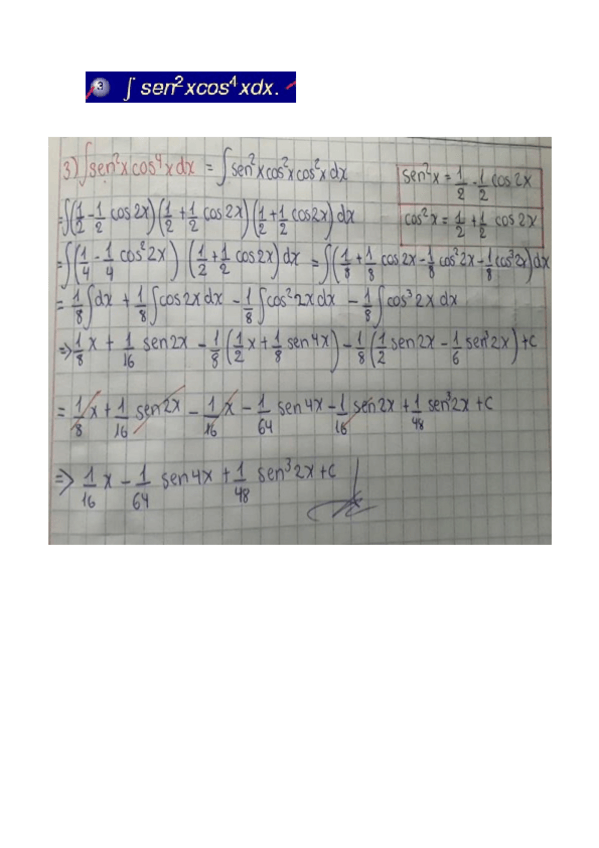 3 ∫ sen²xcos⁴xdx.
3) ∫sen²x cos⁴x dx = ∫sen²x cos²x cos²x dx
sen²x = 1/2 - 1/2 cos 2x
cos²x = 1/2 + 1/2 cos 2x
=∫(1/2 - 1/2 cos 2x)(1/2 + 1/2 cos 2x)(1/2 + 1/2 cos2x) dx
=∫(1/4 - 1/4 cos²2x) (1/2 + 1/2 cos 2x) dx = ∫(1/8 + 1/8 cos 2x - 1/8 cos²2x - 1/8 cos³2x) dx
= 1/8 ∫dx + 1/8 ∫cos 2x dx - 1/8 ∫cos² 2x dx - 1/8 ∫cos³ 2x dx
=> 1/8 x + 1/16 sen 2x - 1/8 (1/2 x + 1/8 sen 4x) - 1/8 (1/2 sen 2x - 1/6 sen³2x) + C
= 1/8 x + 1/16 sen 2x - 1/16 x - 1/64 sen 4x - 1/16 sen 2x + 1/48 sen³2x + C
=> 1/16 x - 1/64 sen 4x + 1/48 sen³ 2x + C